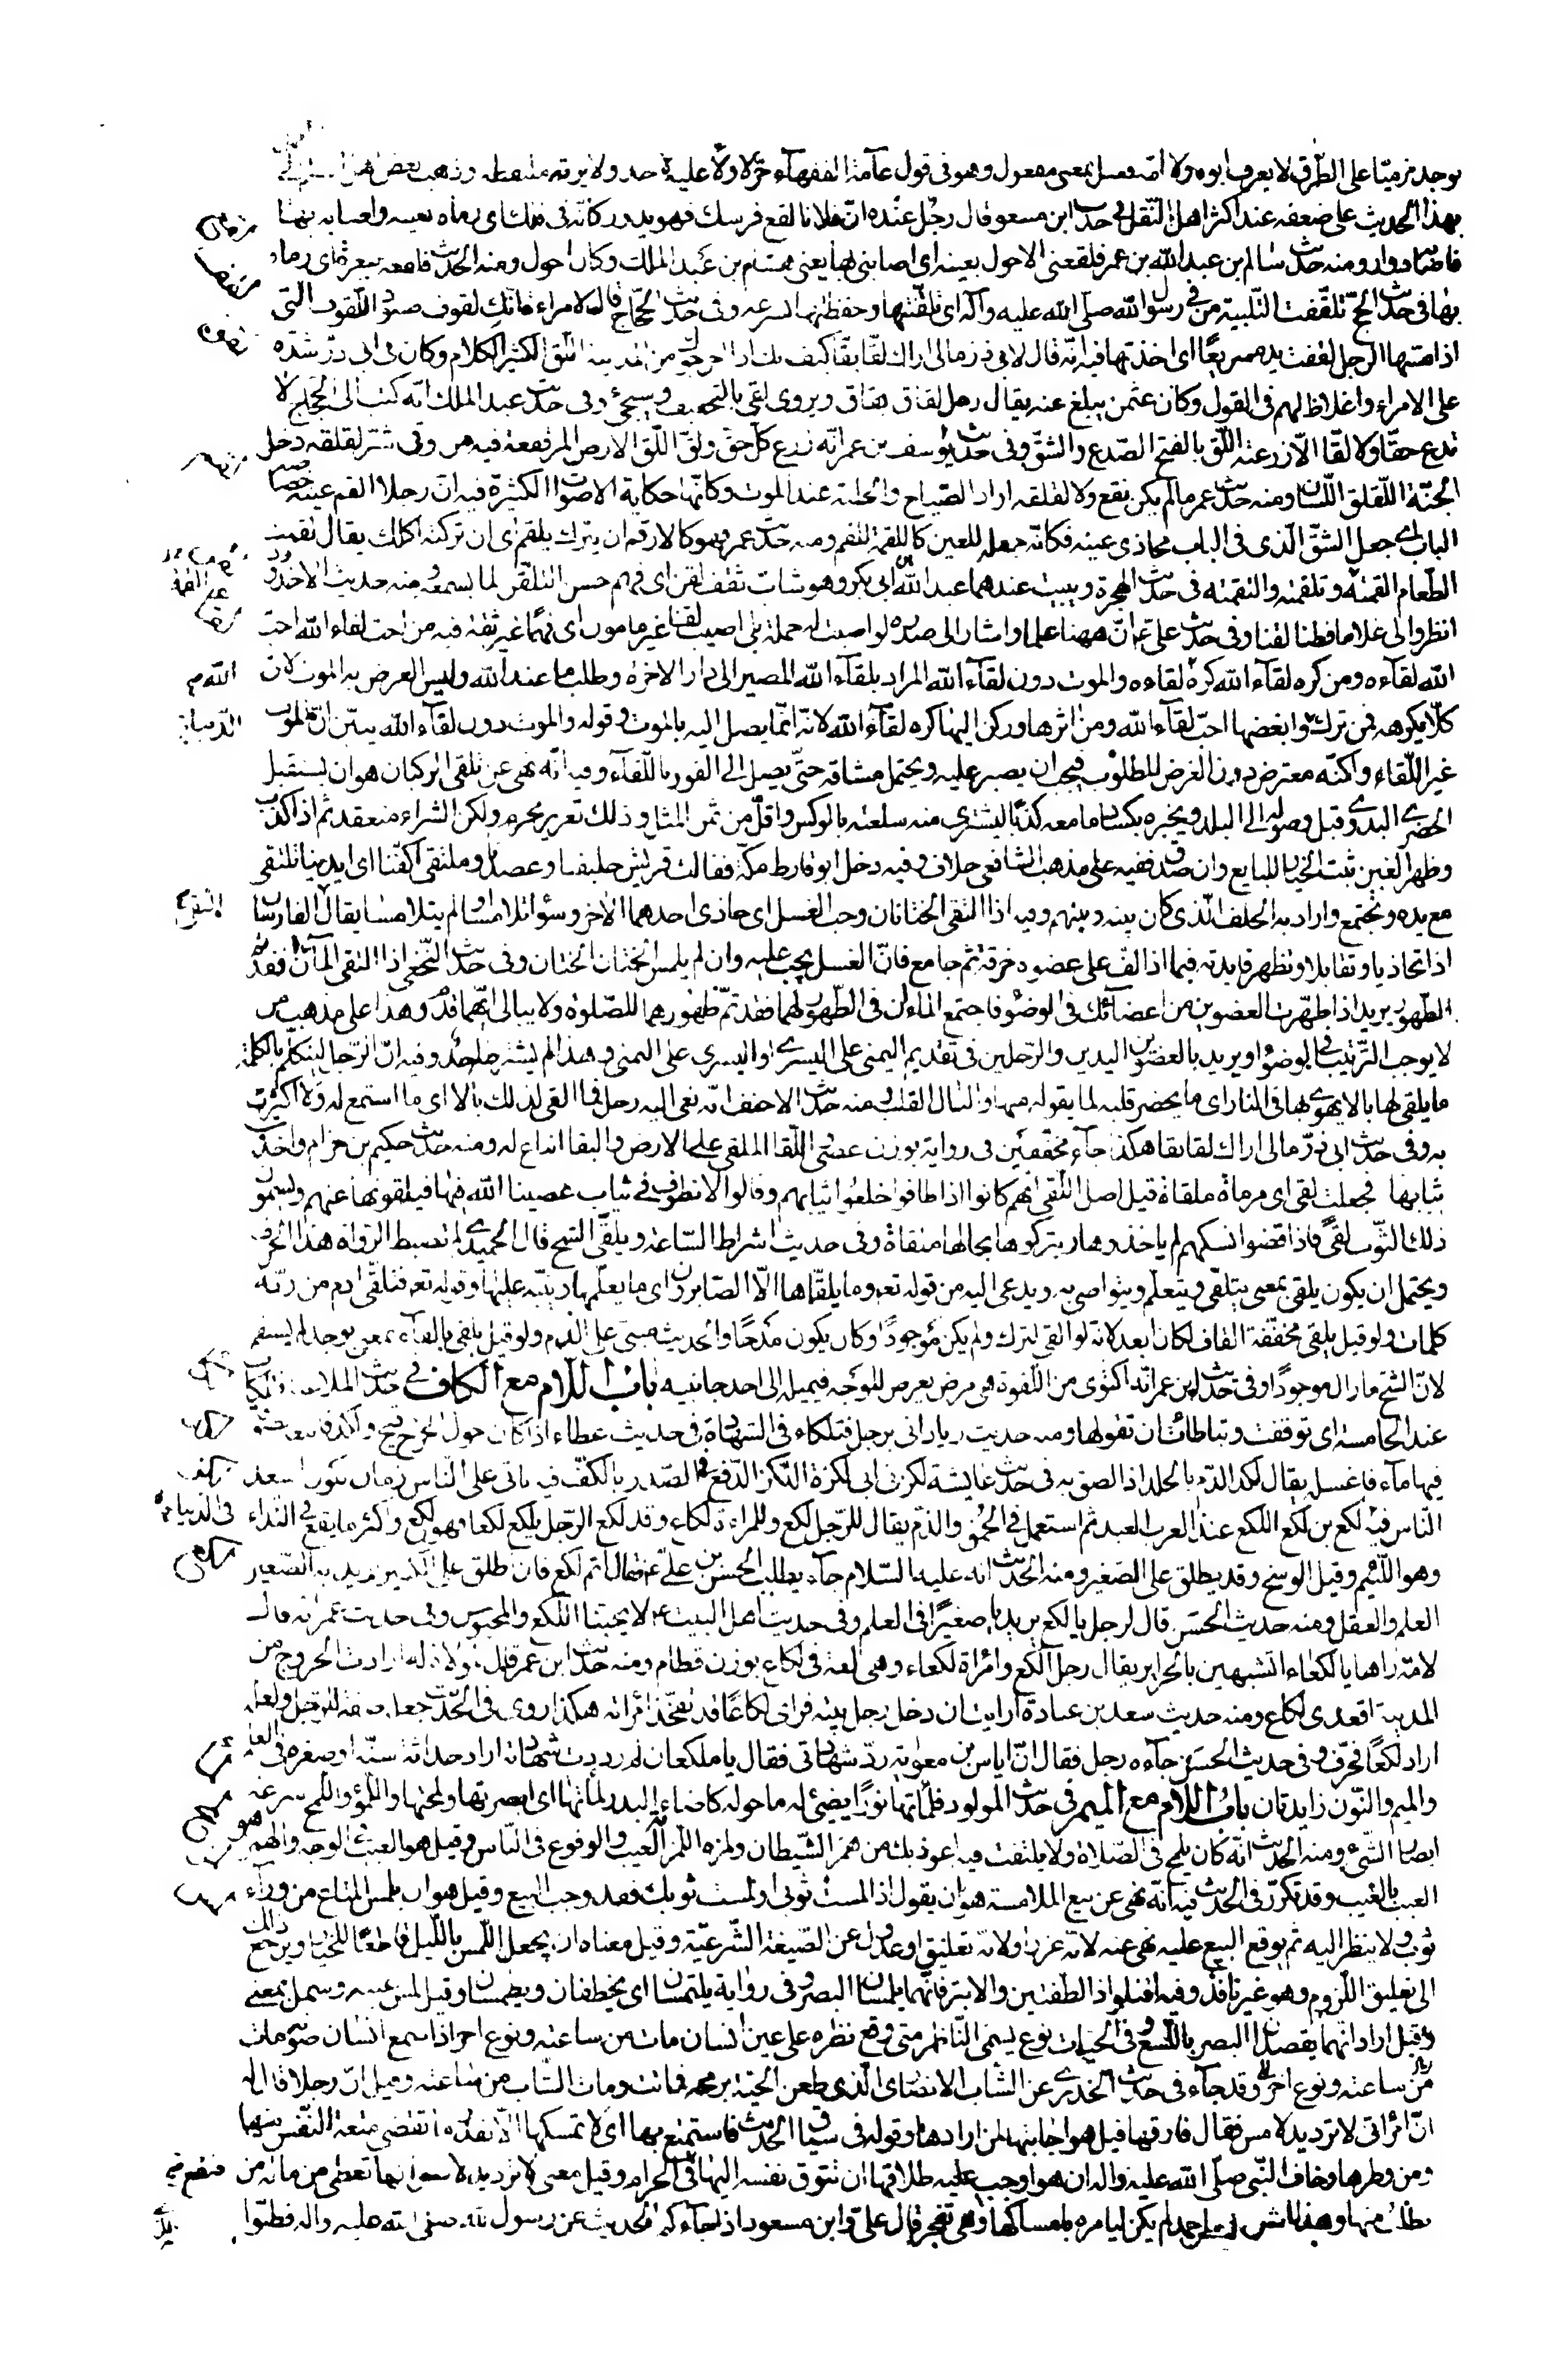 يوجد مرميّا على الطّرق لا يعرف ابوه ولا امّه فعيل بمعنى مفعول وهو فى قول عامّة الفقهآء حرّ لا ولآء عليه لاحد ولا يرثه ملتقطه وذهب بعض اهل
بهذا الحديث على ضعفه عند اكثر اهل النّقل فى حديث ابن مسعود قال رجل عنده انّ فلانا لقع فرسك فهو يدور كانّه فى فلك اى رماه بعينه واصابه بها
فاصابه دوار ومنه حديث سالم بن عبد الله بن عمر فلقعنى الاحول بعينه اى اصابنى بها يعنى هشام بن عبد الملك وكان احول ومنه الحديث فلقعه ببعرة اى رماه
بها فى حديث الحجّ تلقّفت التّلبية من فى رسول الله صلّى الله عليه وآله اى تلقّنتها وحفظتها بسرعة وفى حديث الحجّاج قال لامراة انّك لقوف صيود اللّقوف التى
اذا مسّها الرجل لقفت يده سريعًا اى اخذتها فيه انّه قال لابى ذر مالى اراك لقّا بقّا كيف بك اذا اخرجوك من المدينة اللّق الكثير الكلام وكان فى ابى ذرّ شدّة
على الامراء واغلاظ لهم فى القول وكان عثمن يبلغ عنه يقال رجل لقاق بقاق ويروى لقى بالتخفيف وسيجئ وفى حديث عبد الملك انّه كتب الى الحجّاج لا
تدع حقّا ولا لقّا الاّ زرعته اللّق بالفتح الصّدع والشقّ وفى حديث يوسف بن عمر انّه زرع كلّ حقّ ولقّ اللّق الارض المرتفعة فيه من وقى شرّ لقلقه دخل
الجنّة اللّقلق اللّسان ومنه حديث عمر ما لم يكن نقع ولا لقلقة اراد الصّياح والجلبة عند الموت وكانّها حكاية الاصوات الكثيرة فيه انّ رجلا القم عينه خصاصة
الباب اى جعل الشقّ الّذى فى الباب محاذى عينه فكانّه جعله للعين كاللقمة للفم ومنه حديث عمر فهو كالارقم ان يترك يلقم اى ان تركته اكلك يقال لقمت
الطّعام القمته وتلقمته والتقمته فى حديث الهجرة ويبيت عندهما عبد الله ابن ابى بكر وهو شابّ ثقف لقن اى فهم حسن التلقّن لما يسمعه ومنه حديث الاخدود
انظروا الى غلاما فطنا لقنا وفى حديث علىّ ع انّ ههنا علما واشار الى صدره لو اصبت له حملة بلى اصيب لقنا غير مامون اى فهمًا غير ثقة فيه من احبّ لقاء الله احبّ
الله لقآءه ومن كره لقآء الله كره لقاءه والموت دون لقآء الله المراد بلقآء الله المصير الى دار الاخرة وطلب ما عند الله وليس الغرض به الموت لانّ
كلّا يكرهه فمن ترك وابغضها احبّ لقآء الله ومن اثرها وركن اليها كره لقآء الله لانّه انّما يصل اليه بالموت وقوله والموت دون لقآء الله يبيّن انّ الموت
غير اللّقاء ولكنّه معترض دون الغرض المطلوب فيجب ان يصبر عليه ويحتمل مشاقه حتّى يصل الى الفوز باللّقآء وفيه انّه نهى عن تلقى الركبان هو ان يستقبل
الحضرى البدوى قبل وصوله الى البلد ويخبره بكساد ما معه كذبًا ليشترى منه سلعته بالوكس واقلّ من ثمن المثل وذلك تغرير محرم ولكن الشراء منعقد ثم اذا كذب
وظهر الغبن ثبت الخيار للبايع وان صدق ففيه على مذهب الشافعى خلاف وفيه دخل ابو قارظ مكّة فقالت قريش حليفنا وعضدنا وملتقى اكفّنا اى ايدينا تلتقى
مع يده وتجتمع واراد به الحلف الّذى كان بينه وبينهم وفيه اذا التقى الختانان وجب الغسل اى حاذى احدهما الاخر وسوآء تلامسا او لم يتلامسا يقال الفارسان
اذا تحاذيا وتقابلا وتظهر فايدته فيما اذا لفّ على عضوه خرقة ثم جامع فانّ الغسل يجب عليه وان لم يلمس الختان الختان وفى حديث النّخعى اذا التقى المآان فقد تمّ
الطّهور يريد اذا طهّرت العضوين من اعضآئك فى الوضوء فاجتمع المآءان فى الطّهور لهما فقد تمّ طهورهما للصّلوة ولا يبالى ايّهما قدّم وهذا على مذهب من
لا يوجب التّرتيب فى الوضوء او يريد بالعضوين اليدين والرّجلين فى تقديم اليمنى على اليسرى او اليسرى على اليمنى وهذا لم يشترطه احد وفيه انّ الرّجل ليتكلّم بالكلمة
ما يلقى لها بالا يهوى بها فى النار اى ما يحضر قلبه لما يقوله منها والبال القلب ومنه حديث الاحنف انّه نعى اليه رجل فما القى لذلك بالا اى ما استمع له ولا اكترث
به وفى حديث ابى ذرّ مالى اراك لقا بقا هكذا جآء مخفّفين فى رواية بوزن عصّى اللّقا الملقى على الارض والبقا اتباع له ومنه حديث حكيم بن حزام واخذت
ثيابها فجعلت لقى اى مرماة ملقاة قيل اصل اللّقى انّهم كانوا اذا طافوا خلعوا ثيابهم وقالوا لا نطوف فى ثياب عصينا الله فيها فيلقونها عنهم ويسمّون
ذلك الثّوب لقىً فاذا قضوا نسكهم لم ياخذوها وتركوها بحالها ملقاة وفى حديث اشراط السّاعة ويلقى الشحّ قال الحميدى لم تضبط الرّواة هذا الحرف
ويحتمل ان يكون يلقى بمعنى يتلقّى ويتعلّم ويتواصى به ويدعى اليه من قوله تعه وما يلقّاها الاّ الصّابرون اى ما يعلّمها وينبّه عليها وقوله تعه فتلقّى ادم من ربّه
كلمات ولو قيل يلقى مخفّفة القاف لكان ابعد لانّه لو القى لترك ولم يكن موجودًا وكان يكون مدحًا والحديث مبنى على الذم ولو قيل يلفى بالفآء بمعنى يوجد لم يستقم
لانّ الشحّ ما زال موجودًا وفى حديث ابن عمر انّه اكتوى من اللّقوة هى مرض يعرض للوجه فيميله الى احد جانبيه باب اللّام مع الكاف فى حديث الملاعنة فتلكأت
عند الخامسة اى توقفت وتباطات ان تقولها ومنه حديث زياد اتى برجل فتلكاء فى الشهادة فى حديث عطاء اذا كان حول الجرح قيح ولكد فاتبعه بصوفة
فيها مآء فاغسله يقال لكد الدّم بالجلد اذا لصق به فى حديث عايشة لكزنى ابى لكزة اللكز الدّفع فى الصّدر بالكفّ فيه ياتى على النّاس زمان يكون اسعد
النّاس فيه لكع بن لكع اللكع عند العرب العبد ثم استعمل فى الحمق والذّم يقال للرّجل لكع وللمراة لكاع وقد لكع الرّجل يلكع لكعا فهو لكع واكثر ما يقع فى النّداء
وهو اللّئيم وقيل الوسخ وقد يطلق على الصّغير ومنه الحديث انّه عليه السّلام جآء يطلب الحسن بن علىّ ع فقال اثم لكع فان اطلق على الكبير اريد به الصّغير
العلم والعقل ومنه حديث الحسن قال لرجل يا لكع يريد يا صغيرًا فى العلم وفى حديث اهل البيت ع لا يحبّنا اللّكع والمحيوس وفى حديث عمر انّه قال
لامة راها يا لكعاء اتشبهين بالحراير يقال رجل الكع وامراة لكعاء وهى لغة فى لكاع بوزن قطام ومنه حديث ابن عمر قال لمولاة له ارادت الخروج من
المدينة اقعدى لكاع ومنه حديث سعد بن عبادة ارايت ان دخل رجل بيته فراى لكاعًا قد تفخّذ امراته هكذا روى فى الحديث جعله صفة للرّجل ولعلّه
اراد لكعًا فحرّف وفى حديث الحسن جآءه رجل فقال انّ اياس بن معوية ردّ شهادتى فقال يا ملكعان لم رددت شهادته اراد حداثة سنّه او صغره فى العلم
والميم والنّون زايدتان باب اللّام مع الميم فى حديث المولود فلمأتها نورًا يضئ له ما حوله كاضاءة البدر لمأتها اى ابصرتها ولمحتها واللّمؤ واللّمح سرعة
ابصار الشّىء ومنه الحديث انّه كان يلمح فى الصّلاة ولا يلتفت فيه اعوذ بك من همز الشّيطان ولمزه اللّمز العيب والوقوع فى النّاس وقيل هو العيب فى الوجه والهمز
العيب بالغيب وقد تكرّر فى الحديث فيه انّه نهى عن بيع الملامسة هو ان يقول اذا لمست ثوبى او لمست ثوبك فقد وجب البيع وقيل هو ان يلمس المتاع من ورآء
ثوب ولا ينظر اليه ثم يوقع البيع عليه نهى عنه لانّه غرر او لانّه تعليق او عدول عن الصّيغة الشّرعيّة وقيل معناه ان يجعل اللّمس باللّيل قاطعًا للخيار ويرجع ذلك
الى تعليق اللّزوم وهو غير نافذ وفيه اقتلوا ذا الطّفيتين والابتر فانّهما يلمسان البصر وفى رواية يلتمسان اى يخطفان ويطمسان وقيل لمس عينه وسمل بمعنى
وقيل اراد انّهما يقصدان البصر باللّسع وفى الحيّات نوع يسمّى النّاظر متى وقع نظره على عين انسان مات من ساعته ونوع اخر اذا سمع انسان صوته مات
من ساعته ونوع اخر وقد جآء فى حديث الخدرى عن الشّاب الانصارى الّذى طعن الحيّة برمحه فماتت ومات الشّاب من ساعته وفيه انّ رجلا قال له
انّ امراتى لا تردّ يد لامس فقال فارقها قيل هو اجابتها لمن ارادها وقوله فى سياق الحديث فاستمتع بها اى لا تمسكها الاّ بقدر ما تقضى متعة النّفس منها
ومن وطرها وخاف النّبى صلّى الله عليه واله ان هو اوجب عليه طلاقها ان تتوق نفسه اليها فى الحرام وقيل معنى لا تردّ يد لامس انها تعطى من ماله من
يطلب منها وهذا اشبه قال احمد لم يكن ليامره بامساكها وهى تفجر قال علىّ وابن مسعود اذا جآءكم الحديث عن رسول الله صلّى الله عليه واله فظنّوا